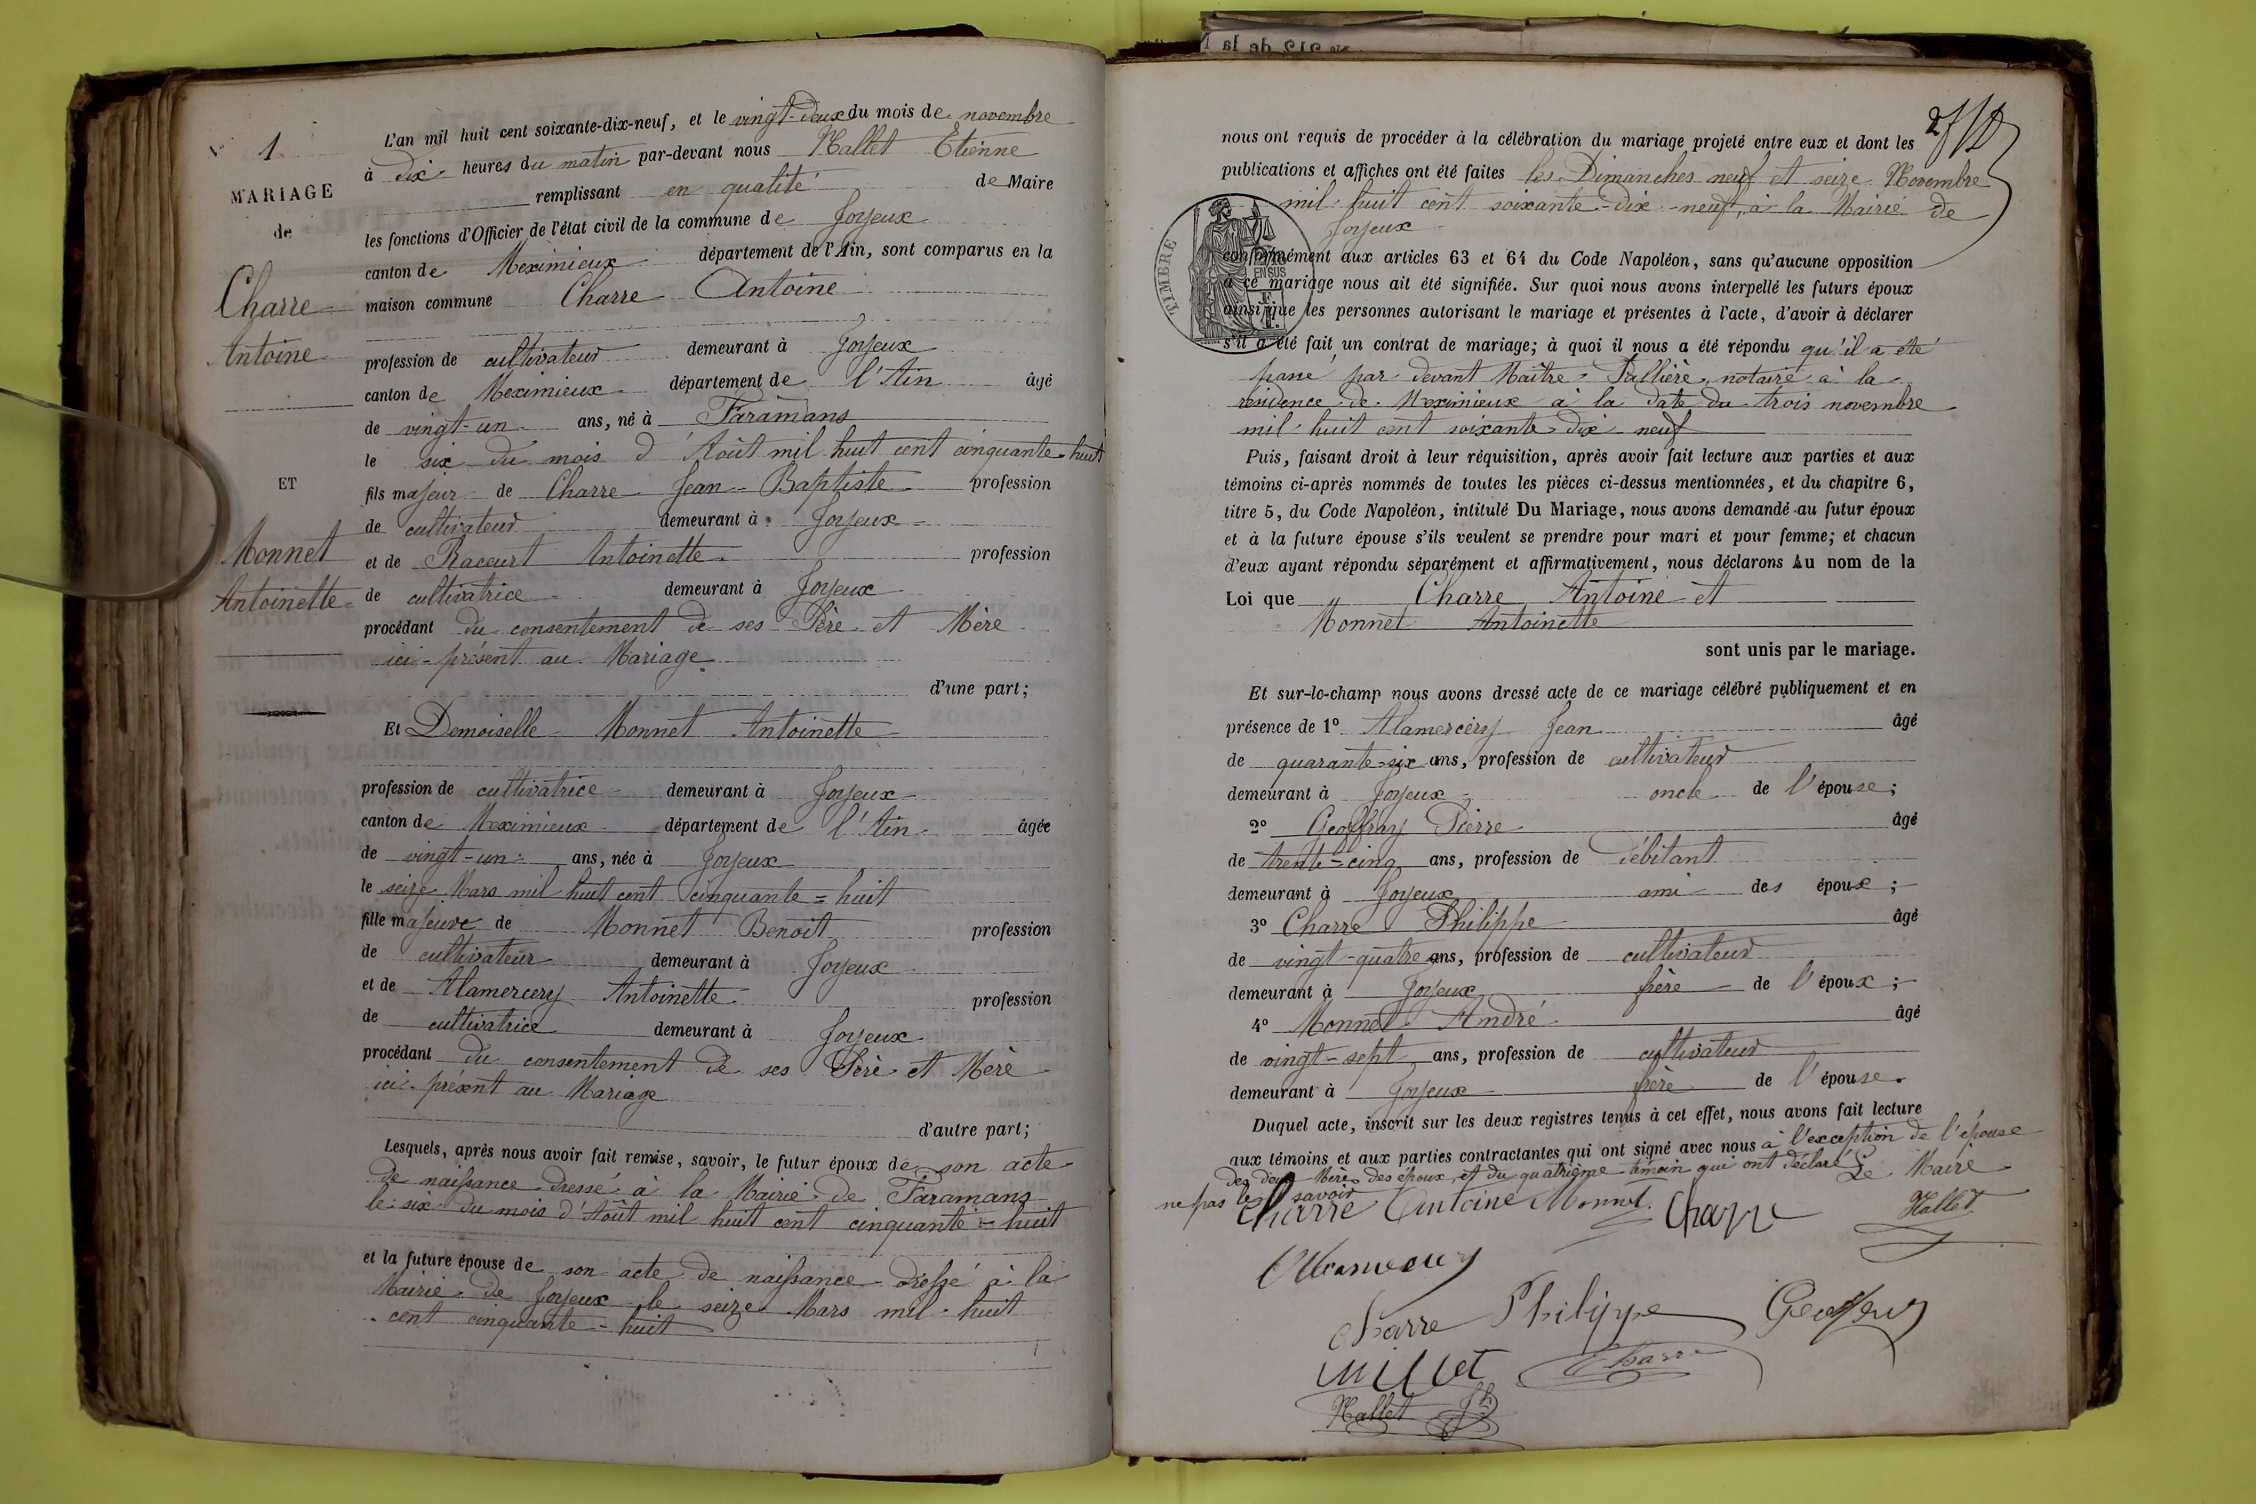 N° 1
MARIAGE
de
Charre
Antoine
ET
Monnet
Antoinette
L'an mil huit cent soixante-dix-neuf, et le vingt-deux du mois de novembre
à dix heures du matin par-devant nous Mallet Etienne
remplissant en qualité de Maire
les fonctions d'Officier de l'état civil de la commune de Joyeux
canton de Meximieux département de l'Ain, sont comparus en la
maison commune Charre Antoine
profession de cultivateur demeurant à Joyeux
canton de Meximieux département de l'Ain âgé
de vingt-un ans, né à Faramans
le six du mois d'Août mil huit cent cinquante-huit
fils majeur de Charre Jean-Baptiste profession
de cultivateur demeurant à Joyeux
et de Racourt Antoinette profession
de cultivatrice demeurant à Joyeux
procédant du consentement de ses Père et Mère
ici présent au Mariage
d'une part;
Et Demoiselle Monnet Antoinette
profession de cultivatrice demeurant à Joyeux
canton de Meximieux département de l'Ain âgée
de vingt-un ans, née à Joyeux
le seize Mars mil huit cent cinquante=huit
fille majeure de Monnet Benoit profession
de cultivateur demeurant à Joyeux
et de Alamercery Antoinette profession
de cultivatrice demeurant à Joyeux
procédant du consentement de ses Père et Mère
ici présent au Mariage
d'autre part;
Lesquels, après nous avoir fait remise, savoir, le futur époux de son acte
de naissance dressé à la Mairie de Faramans
le six du mois d'Août mil huit cent cinquante=huit
et la future épouse de son acte de naissance dressé à la
Mairie de Joyeux le seize Mars mil huit
cent cinquante-huit
nous ont requis de procéder à la célébration du mariage projeté entre eux et dont les
publications et affiches ont été faites les Dimanches neuf et seize Novembre
mil huit cent soixante-dix-neuf, à la Mairie de
Joyeux
TIMBRE
EN SUS
conformément aux articles 63 et 64 du Code Napoléon, sans qu'aucune opposition
à ce mariage nous ait été signifiée. Sur quoi nous avons interpellé les futurs époux
ainsi que les personnes autorisant le mariage et présentes à l'acte, d'avoir à déclarer
s'il a été fait un contrat de mariage; à quoi il nous a été répondu qu'il a été
passé par devant Maître notaire à la
résidence de Meximieux à la date du trois novembre
mil huit cent soixante-dix neuf
Puis, faisant droit à leur réquisition, après avoir fait lecture aux parties et aux
témoins ci-après nommés de toutes les pièces ci-dessus mentionnées, et du chapitre 6,
titre 5, du Code Napoléon, intitulé Du Mariage, nous avons demandé au futur époux
et à la future épouse s'ils veulent se prendre pour mari et pour femme; et chacun
d'eux ayant répondu séparément et affirmativement, nous déclarons Au nom de la
Loi que Charre Antoine et
Monnet Antoinette
sont unis par le mariage.
Et sur-le-champ nous avons dressé acte de ce mariage célébré publiquement et en
présence de 1° Alamercery Jean âgé
de quarante-six ans, profession de cultivateur
demeurant à Joyeux oncle de l'épouse;
2° Geoffray Pierre âgé
de trente=cinq ans, profession de débitant
demeurant à Joyeux ami des époux;
3° Charre Philippe âgé
de vingt-quatre ans, profession de cultivateur
demeurant à Joyeux frère de l'époux;
4° Monnet André âgé
de vingt-sept ans, profession de cultivateur
demeurant à Joyeux frère de l'épouse.
Duquel acte, inscrit sur les deux registres tenus à cet effet, nous avons fait lecture
aux témoins et aux parties contractantes qui ont signé avec nous à l'exception de l'épouse
des deux Mères des époux, et du quatrième témoin qui ont déclaré
ne pas le savoir Le Maire
Charre Antoine Monnet Charre Mallet
Charre Philippe Geoffray
Millet Charre
Mallet